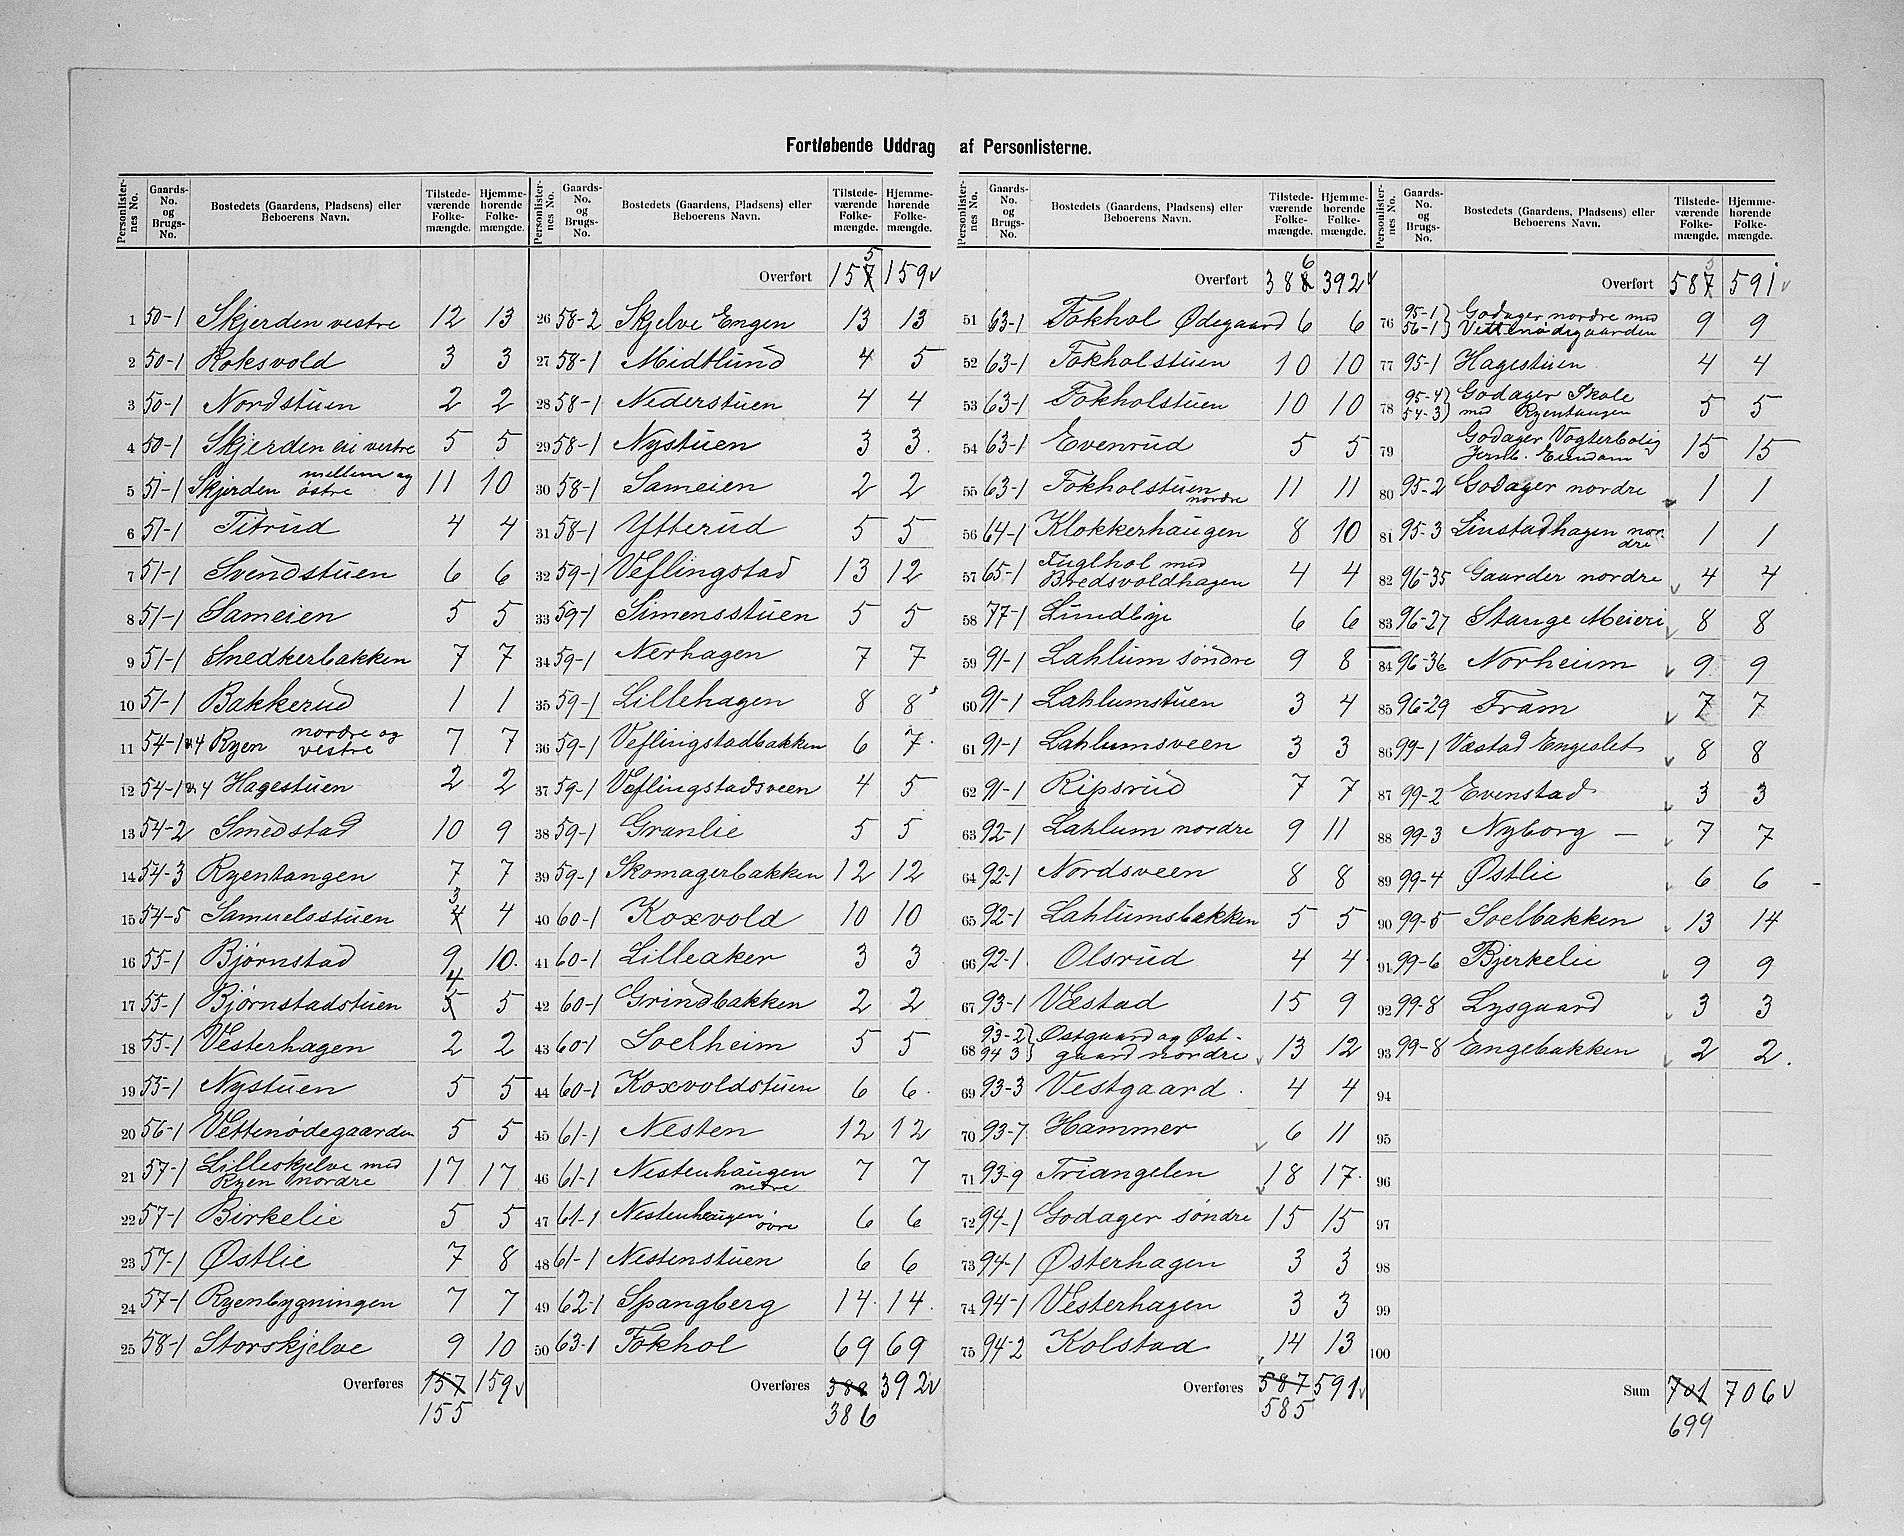 Fortløbende Uddrag af Personlisterne.
Personlisternes No. | Gaards-No. og Brugs-No. | Bostedets (Gaardens, Pladsens) eller Beboerens Navn. | Tilstedeværende Folkemængde. | Hjemmehørende Folkemængde.
1 50-1 Skjerden vestre 12 13
2 50-1 Roksvold 3 3
3 50-1 Nordstuen 2 2
4 50-1 Skjerden vestre 5 5
5 51-1 Skjerden mellem og østre 11 10
6 51-1 Titrud 4 4
7 51-1 Svendstuen 6 6
8 51-1 Sameien 5 5
9 51-1 Snedkerbakken 7 7
10 51-1 Bakkerud 1 1
11 54-1 & 4 Ryen nordre og vestre 7 7
12 54-1 & 4 Hagestuen 2 2
13 54-2 Smedstad 10 9
14 54-3 Ryentangen 7 7
15 54-5 Samuelsstuen 4 3 4
16 55-1 Bjørnstad 9 10
17 55-1 Bjørnstadstuen 5 4 5
18 55-1 Vesterhagen 2 2
19 55-1 Nystuen 5 5
20 56-1 Vettenødegaarden 5 5
21 57-1 Lilleskjelve med Ryen nordre 17 17
22 57-1 Birkelie 5 5
23 57-1 Østlie 7 8
24 57-1 Ryenbygningen 7 7
25 58-1 Storskjelve 9 10
Overføres 157 159
155
Personlisternes No. | Gaards-No. og Brugs-No. | Bostedets (Gaardens, Pladsens) eller Beboerens Navn. | Tilstedeværende Folkemængde. | Hjemmehørende Folkemængde.
Overført 157 5 159
26 58-2 Skjelve Engen 13 13
27 58-1 Midtlund 4 5
28 58-1 Nederstuen 4 4
29 58-1 Nystuen 3 3
30 58-1 Sameien 2 2
31 58-1 Ytterud 5 5
32 59-1 Veflingstad 13 12
33 59-1 Simensstuen 5 5
34 59-1 Nerhagen 7 7
35 59-1 Lillehagen 8 8
36 59-1 Veflingstadbakken 6 7
37 59-1 Veflingstadsveen 4 5
38 59-1 Granlie 5 5
39 59-1 Skomagerbakken 12 12
40 60-1 Koxvold 10 10
41 60-1 Lilleaker 3 3
42 60-1 Grindbakken 2 2
43 60-1 Soelheim 5 5
44 60-1 Koxvoldstuen 6 6
45 61-1 Nesten 12 12
46 61-1 Nestenhaugen nedre 7 7
47 61-1 Nestenhaugen øvre 6 6
48 61-1 Nestenstuen 6 6
49 62-1 Spangberg 14 14
50 63-1 Fokhol 69 69
Overføres 388 392
386
Personlisternes No. | Gaards-No. og Brugs-No. | Bostedets (Gaardens, Pladsens) eller Beboerens Navn. | Tilstedeværende Folkemængde. | Hjemmehørende Folkemængde.
Overført 388 6 392
51 63-1 Fokhol Ødegaard 6 6
52 63-1 Fokholstuen 10 10
53 63-1 Fokholstuen 10 10
54 63-1 Evenrud 5 5
55 63-1 Fokholstuen nordre 11 11
56 64-1 Klokkerhaugen 8 10
57 65-1 Fuglhol med Bredsvoldhagen 4 4
58 77-1 Lundbye 6 6
59 91-1 Lahlum søndre 9 8
60 91-1 Lahlumstuen 3 4
61 91-1 Lahlumsveen 3 3
62 91-1 Ripsrud 7 7
63 92-1 Lahlum nordre 9 11
64 92-1 Nordsveen 8 8
65 92-1 Lahlumsbakken 5 5
66 92-1 Olsrud 4 4
67 93-1 Væstad 15 9
68 93-2 94 3 Østgaard og Østgaard nordre 13 12
69 93-3 Vestgaard 4 4
70 93-7 Hammer 6 11
71 93-9 Triangelen 18 17
72 94-1 Godager søndre 15 15
73 94-1 Østerhagen 3 3
74 94-1 Vesterhagen 3 3
75 94-2 Kolstad 14 13
Overføres 587 591
585
Personlisternes No. | Gaards-No. og Brugs-No. | Bostedets (Gaardens, Pladsens) eller Beboerens Navn. | Tilstedeværende Folkemængde. | Hjemmehørende Folkemængde.
Overført 587 5 591
76 95-1 56-1 Godager nordre med Vettenødegaarden 9 9
77 95-1 Hagestuen 4 4
78 95-4 54-3 Godager Skole med Ryentangen 5 5
79 Godager Vogterbolig Jernb. Eiendom 15 15
80 95-2 Godager nordre 1 1
81 95-3 Linstadhagen nordre 1 1
82 96-35 Gaarder nordre 4 4
83 96-27 Stange Meieri 8 8
84 96-36 Norheim 9 9
85 96-29 Fram 7 7
86 99-1 Væstad Engeslet 8 8
87 99-2 Evenstad 3 3
88 99-3 Nyborg — 7 7
89 99-4 Østlie 6 6
90 99-5 Soelbakken 13 14
91 99-6 Bjerkelie 9 9
92 99-8 Lysgaard 3 3
93 99-8 Engebakken 2 2
94
95
96
97
98
99
100
Sum 701 706
699